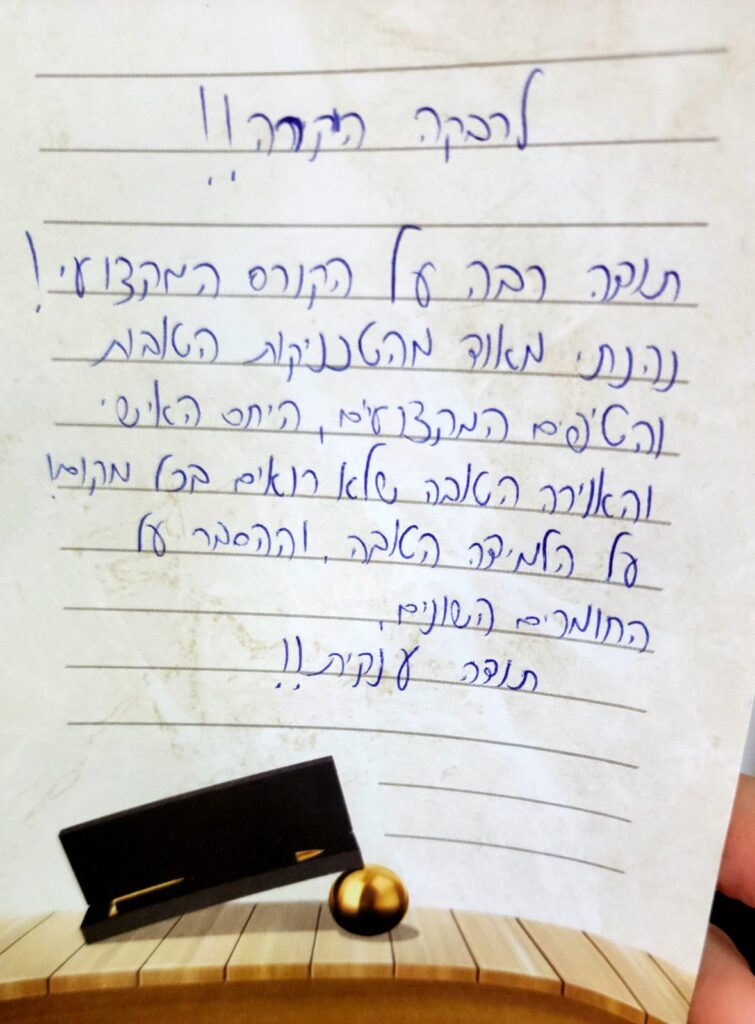 לרבקה היקרה!!
תודה רבה על הקורס המקצועי!
נהנתי מאוד מהטכניקות הטובות
והטיפים המקצועים, היחס האישי
והאוירה הטובה שלא רואים בכל מקום!
על הלמידה הטובה, וההסבר על
החומרים השונים.
תודה ענקית!!